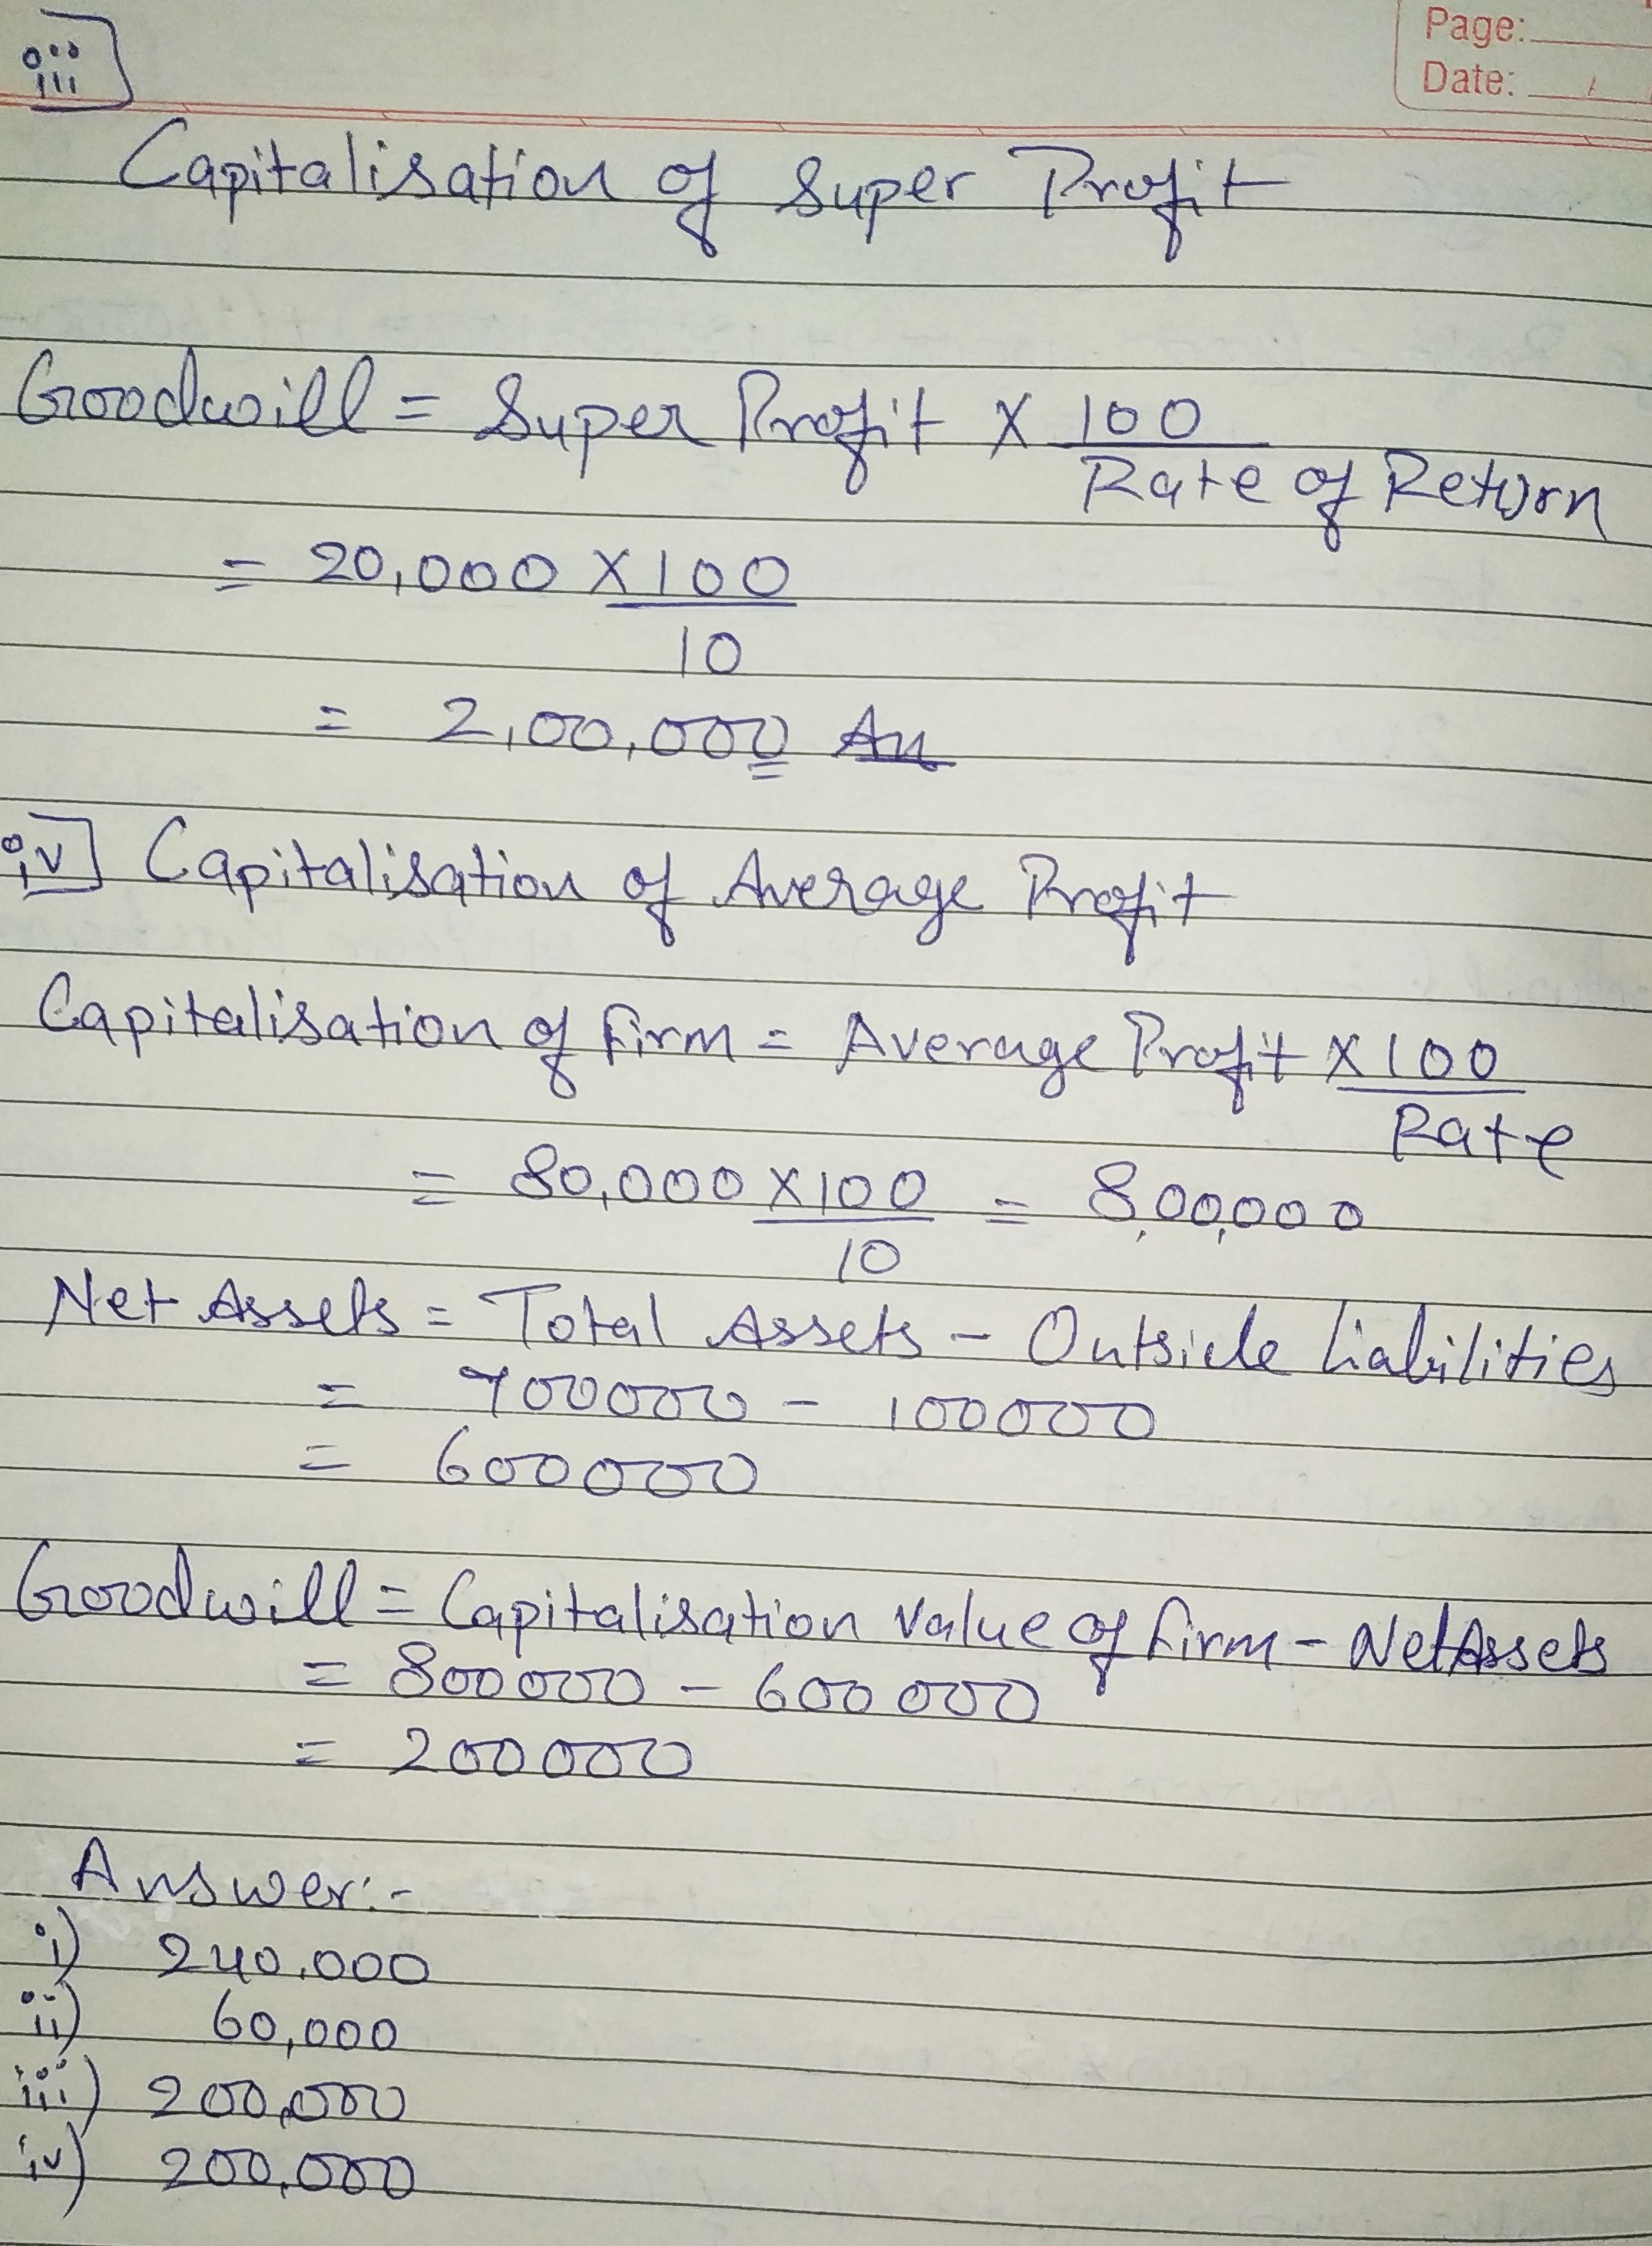 Page:
Date: /
iii]
Capitalisation of Super Profit
Goodwill = Super Profit X 100
Rate of Return
= 20,000 X 100
10
= 2,00,000 An
iv] Capitalisation of Average Profit
Capitalisation of firm = Average Profit X 100
Rate
= 80,000 X 100 = 8,00,000
10
Net Assets = Total Assets - Outside Liabilities
= 700000 - 100000
= 600000
Goodwill = Capitalisation value of firm - Net Assets
= 800000 - 600000
= 200000
Answer:-
i) 240,000
ii) 60,000
iii) 200,000
iv) 200,000